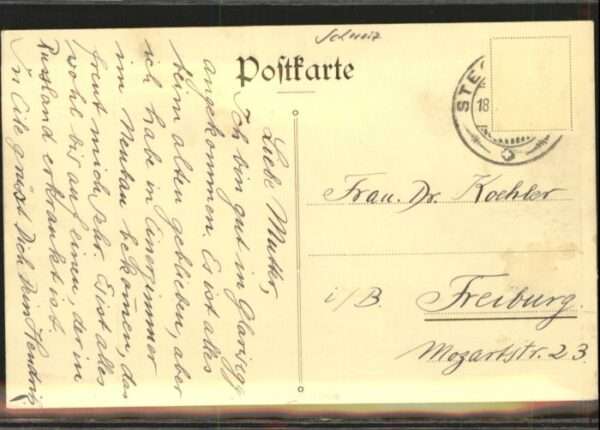 Schweiz
Postkarte
STE
18
Liebe Mutter,
Ich bin gut in Glarisegg
angekommen. Es ist alles
beim alten geblieben, aber
ich habe ein Einerzimmer
im Neubau bekommen, das
freut mich sehr. Es ist alles
wohl bis auf einen, der in
Russland erkrankt ist.
In Eile grüsst Dich Dein
Frau. Dr. Koehler
i/B. Freiburg.
Mozartstr. 23.